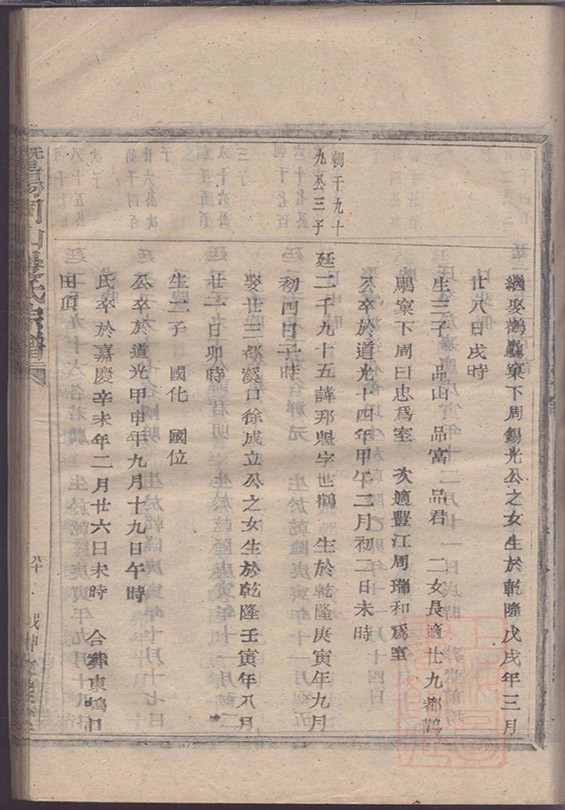 繼娶鶴鵬窠下周錫光公之女生於乾隆戊戌年三月
廿八日戌時
生三子 品山 品富 品君 二女長適廿九都鶴
鵬窠下周曰忠爲室 次適豐江周瑞和爲室
公卒於道光十四年甲午二月初二日未時
朝千九十
九公三子
廷二千九十五諱邦 字世鶴 生於乾隆庚寅年九月
初四日子時
娶廿三都溪口徐成立公之女生於乾隆壬寅年八月
廿二日卯時
生二子 國化 國位
公卒於道光甲申年九月十九日午時
氏卒於嘉慶辛未年二月廿六日未時 合葬東鴻口
田頂
氏宗譜
八十
戊申